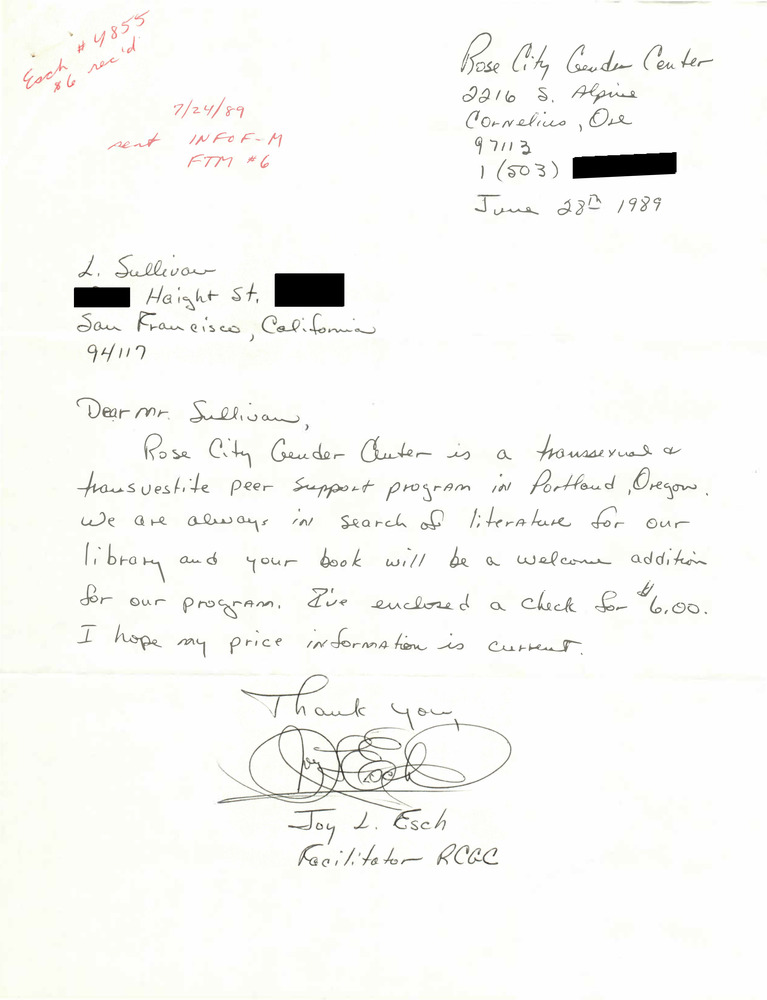 Esch #4855
$6 rec'd
7/24/89
sent INFO F-M
FTM #6
Rose City Gender Center
2216 S. Alpine
Cornelius, Ore
97113
1 (503)
June 28th 1989
L. Sullivan
Haight St.
San Francisco, California
94117
Dear Mr. Sullivan,
Rose City Gender Center is a transsexual &
transvestite peer support program in Portland, Oregon.
We are always in search of literature for our
library and your book will be a welcome addition
for our program. I've enclosed a check for $6.00.
I hope my price information is current.
Thank you,
Joy L. Esch
Joy L. Esch
Facilitator RCGC